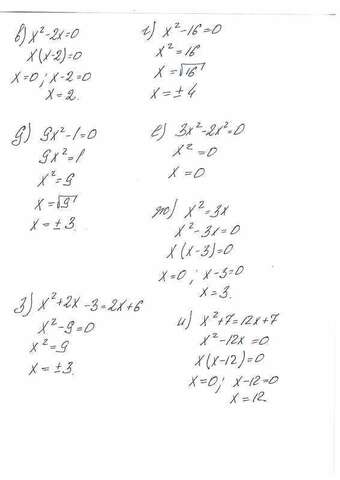 в) x²-2x=0
x(x-2)=0
x=0; x-2=0
x=2.
г) x²-16=0
x²=16
x=√16
x=±4
д) 9x²-1=0
9x²=1
x²=9
x=√9
x=±3.
е) 3x²-2x²=0
x²=0
x=0
ж) x²=3x
x²-3x=0
x(x-3)=0
x=0; x-3=0
x=3.
з) x²+2x-3=2x+6
x²-9=0
x²=9
x=±3.
и) x²+7=12x+7
x²-12x=0
x(x-12)=0
x=0; x-12=0
x=12